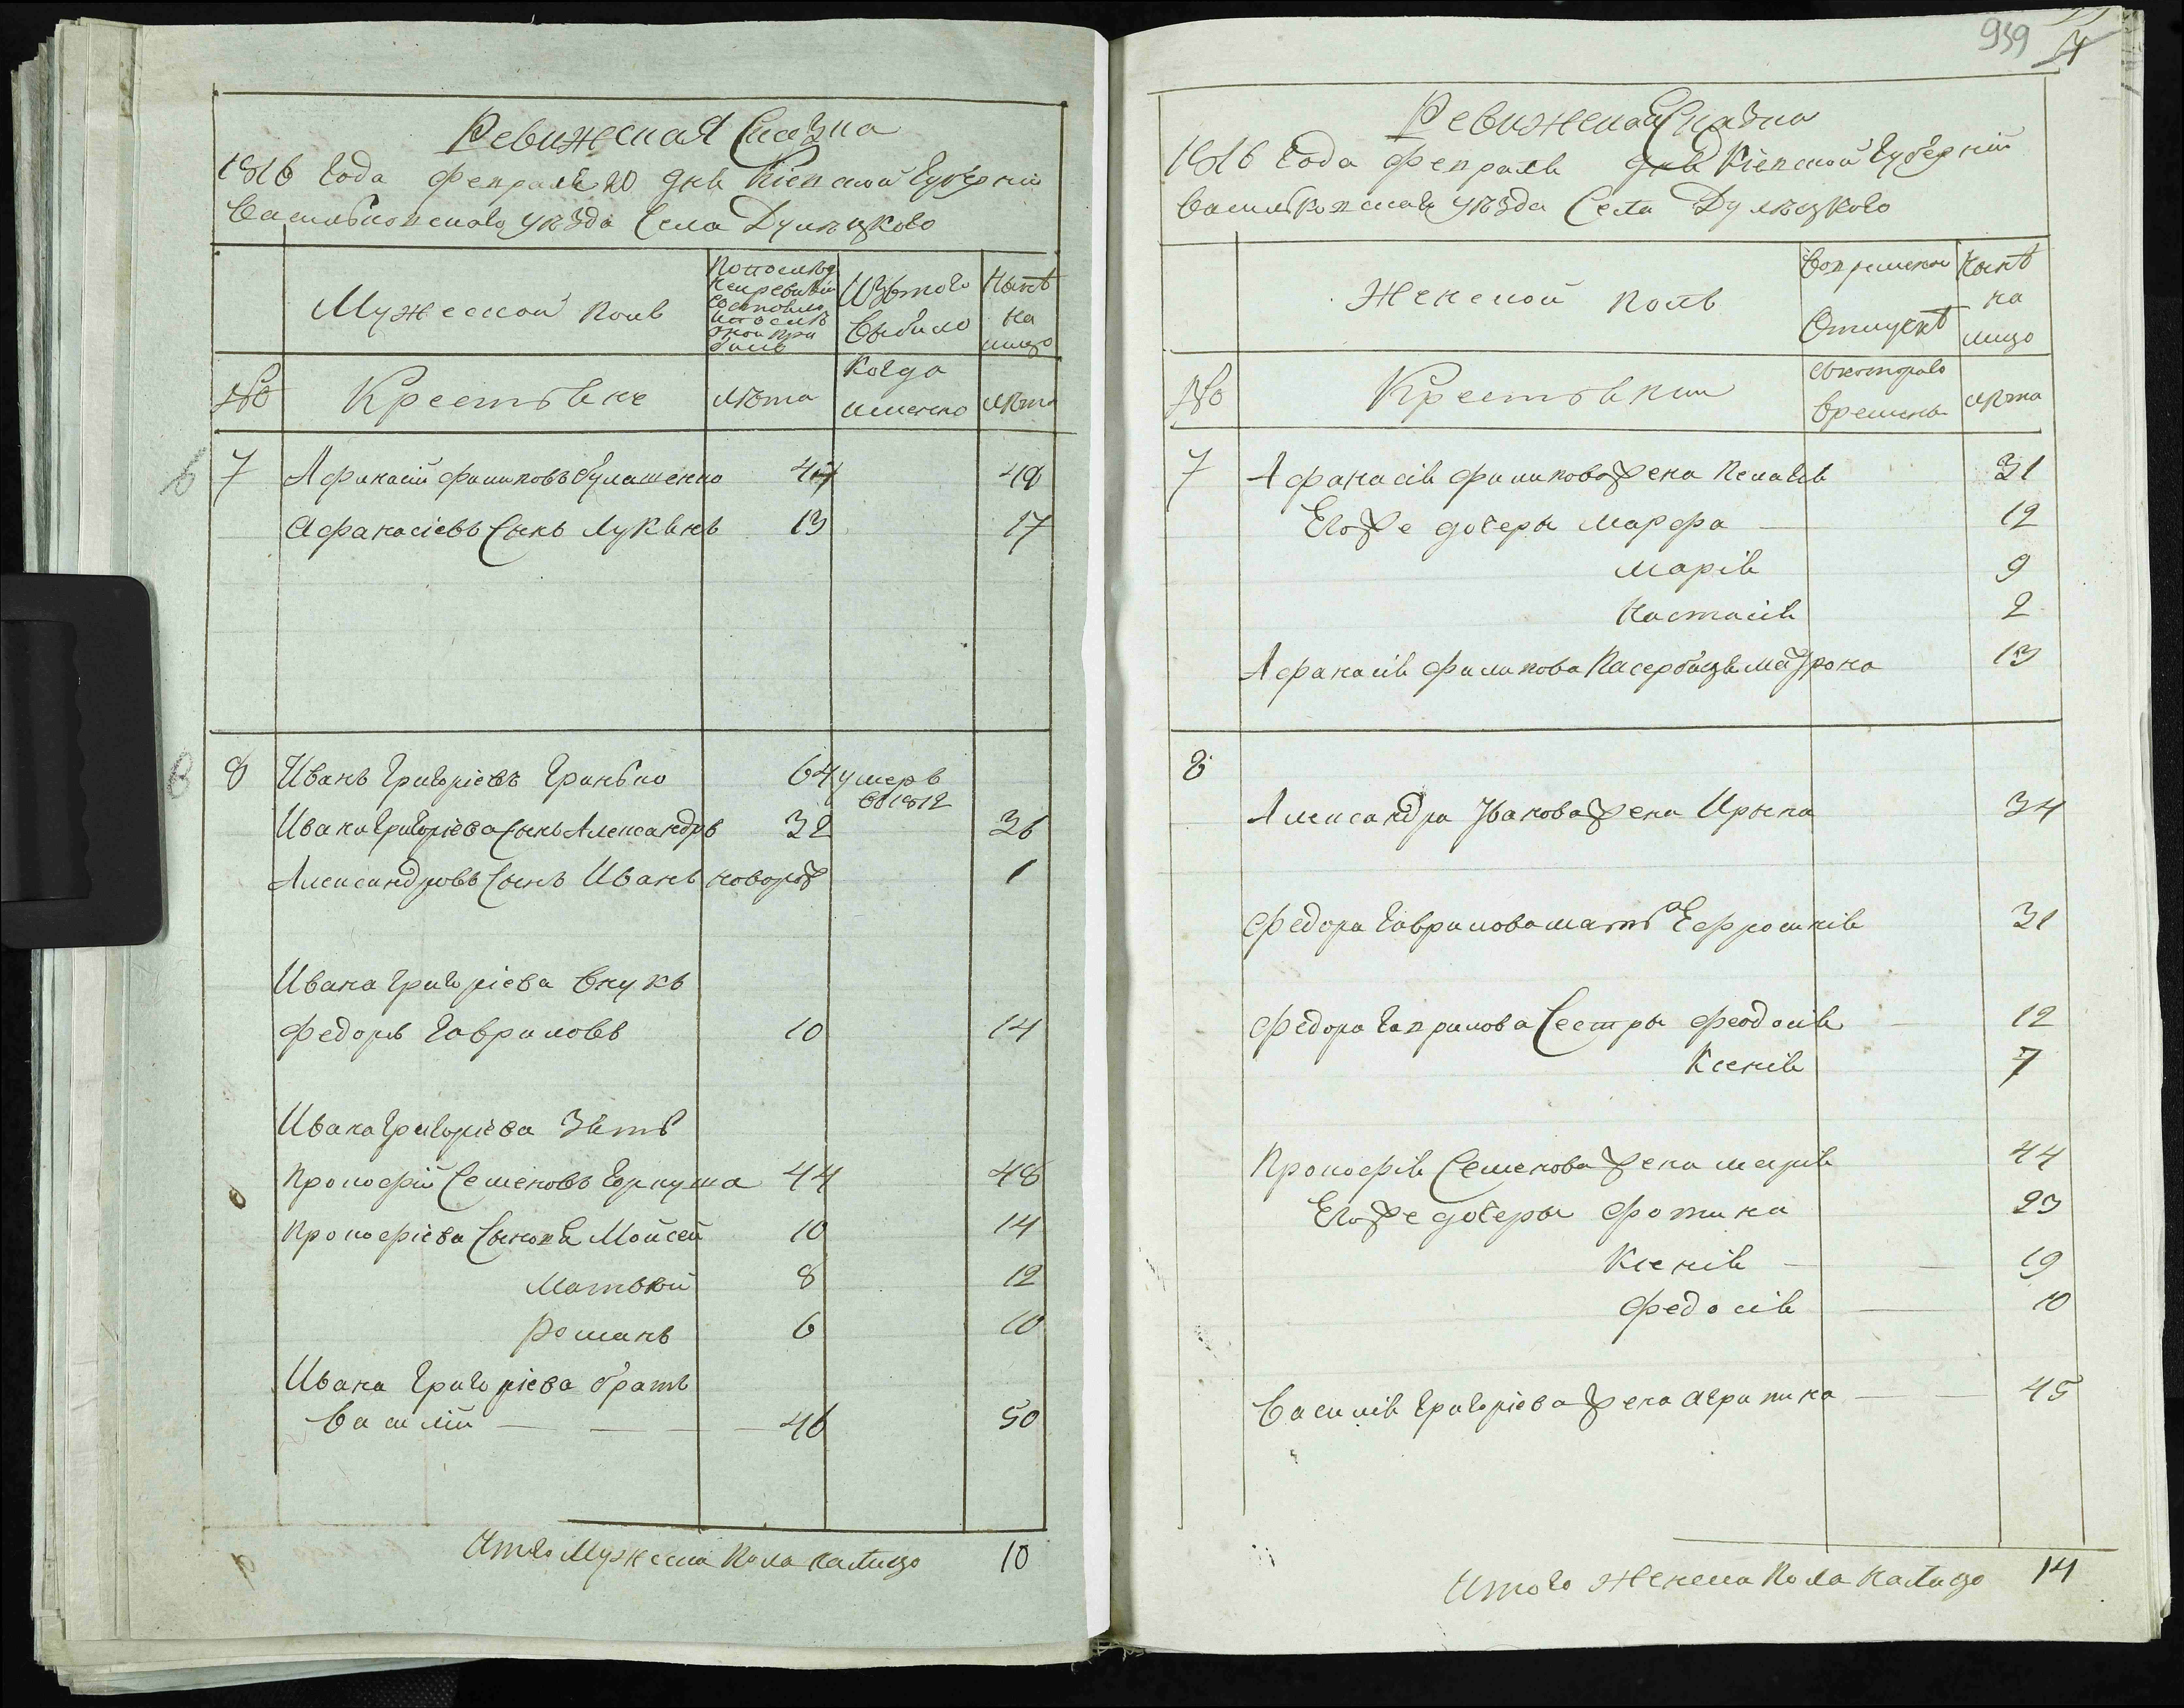 Ревижская Сказка
1816 Года Февраля 20 дня Кіевской Губерніи
Васильковскаго уѣзда Села Дулѣцкого
Мужеской полъ
По последней ревизіи состояло и после оной прибыло
Изъ того выбыло
Нынѣ на лицо
№
Крестьяне
лѣта
Когда именно
лѣта
7 Афанасій Филиповъ Булашенко 44 48
Афанасіевъ Сынъ Лукянъ 13 17
8 Иванъ Григоріевъ Гринько 64 умеръ
въ 1812
Ивана Григоріева Сынъ Александръ 32 36
Александровъ Сынъ Иванъ новорож 1
Ивана Григоріева внукъ
Федоръ Гавриловъ 10 14
Ивана Григоріева Зять
Прокофій Семеновъ 44 48
Прокофіева Сыновя Мойсей 10 14
Матвѣй 8 12
Романъ 6 10
Ивана Григоріева братъ
Василій 46 50
Итого Мужеска Пола налицо 10
939
Ревижская Сказка
1816 Года Февраля дня Кіевской Губерніи
Васильковскаго уѣзда Села Дулѣцкого
Женской полъ
Во временной Отлучкѣ
Нынѣ на лицо
№
Крестянки
Съ котораго времени
лѣта
7 Афанасія Филипова жена Пелагія 31
Его же дочеры Марфа 12
Марія 9
Настасія 2
Афанасія Филипова Пасербица Матрона 13
8
Александра Іванова жена Ирына 34
Федора Гаврилова мать Ефросинія 31
Федора Гаврилова Сестры Феодосія 12
Ксенія 7
Прокофія Семенова жена Марія 44
Его же дочеры Фотина 23
Ксенія 19
Федосія 10
Василія Григоріева жена Агрипина 45
Итого Женска Пола налицо 14